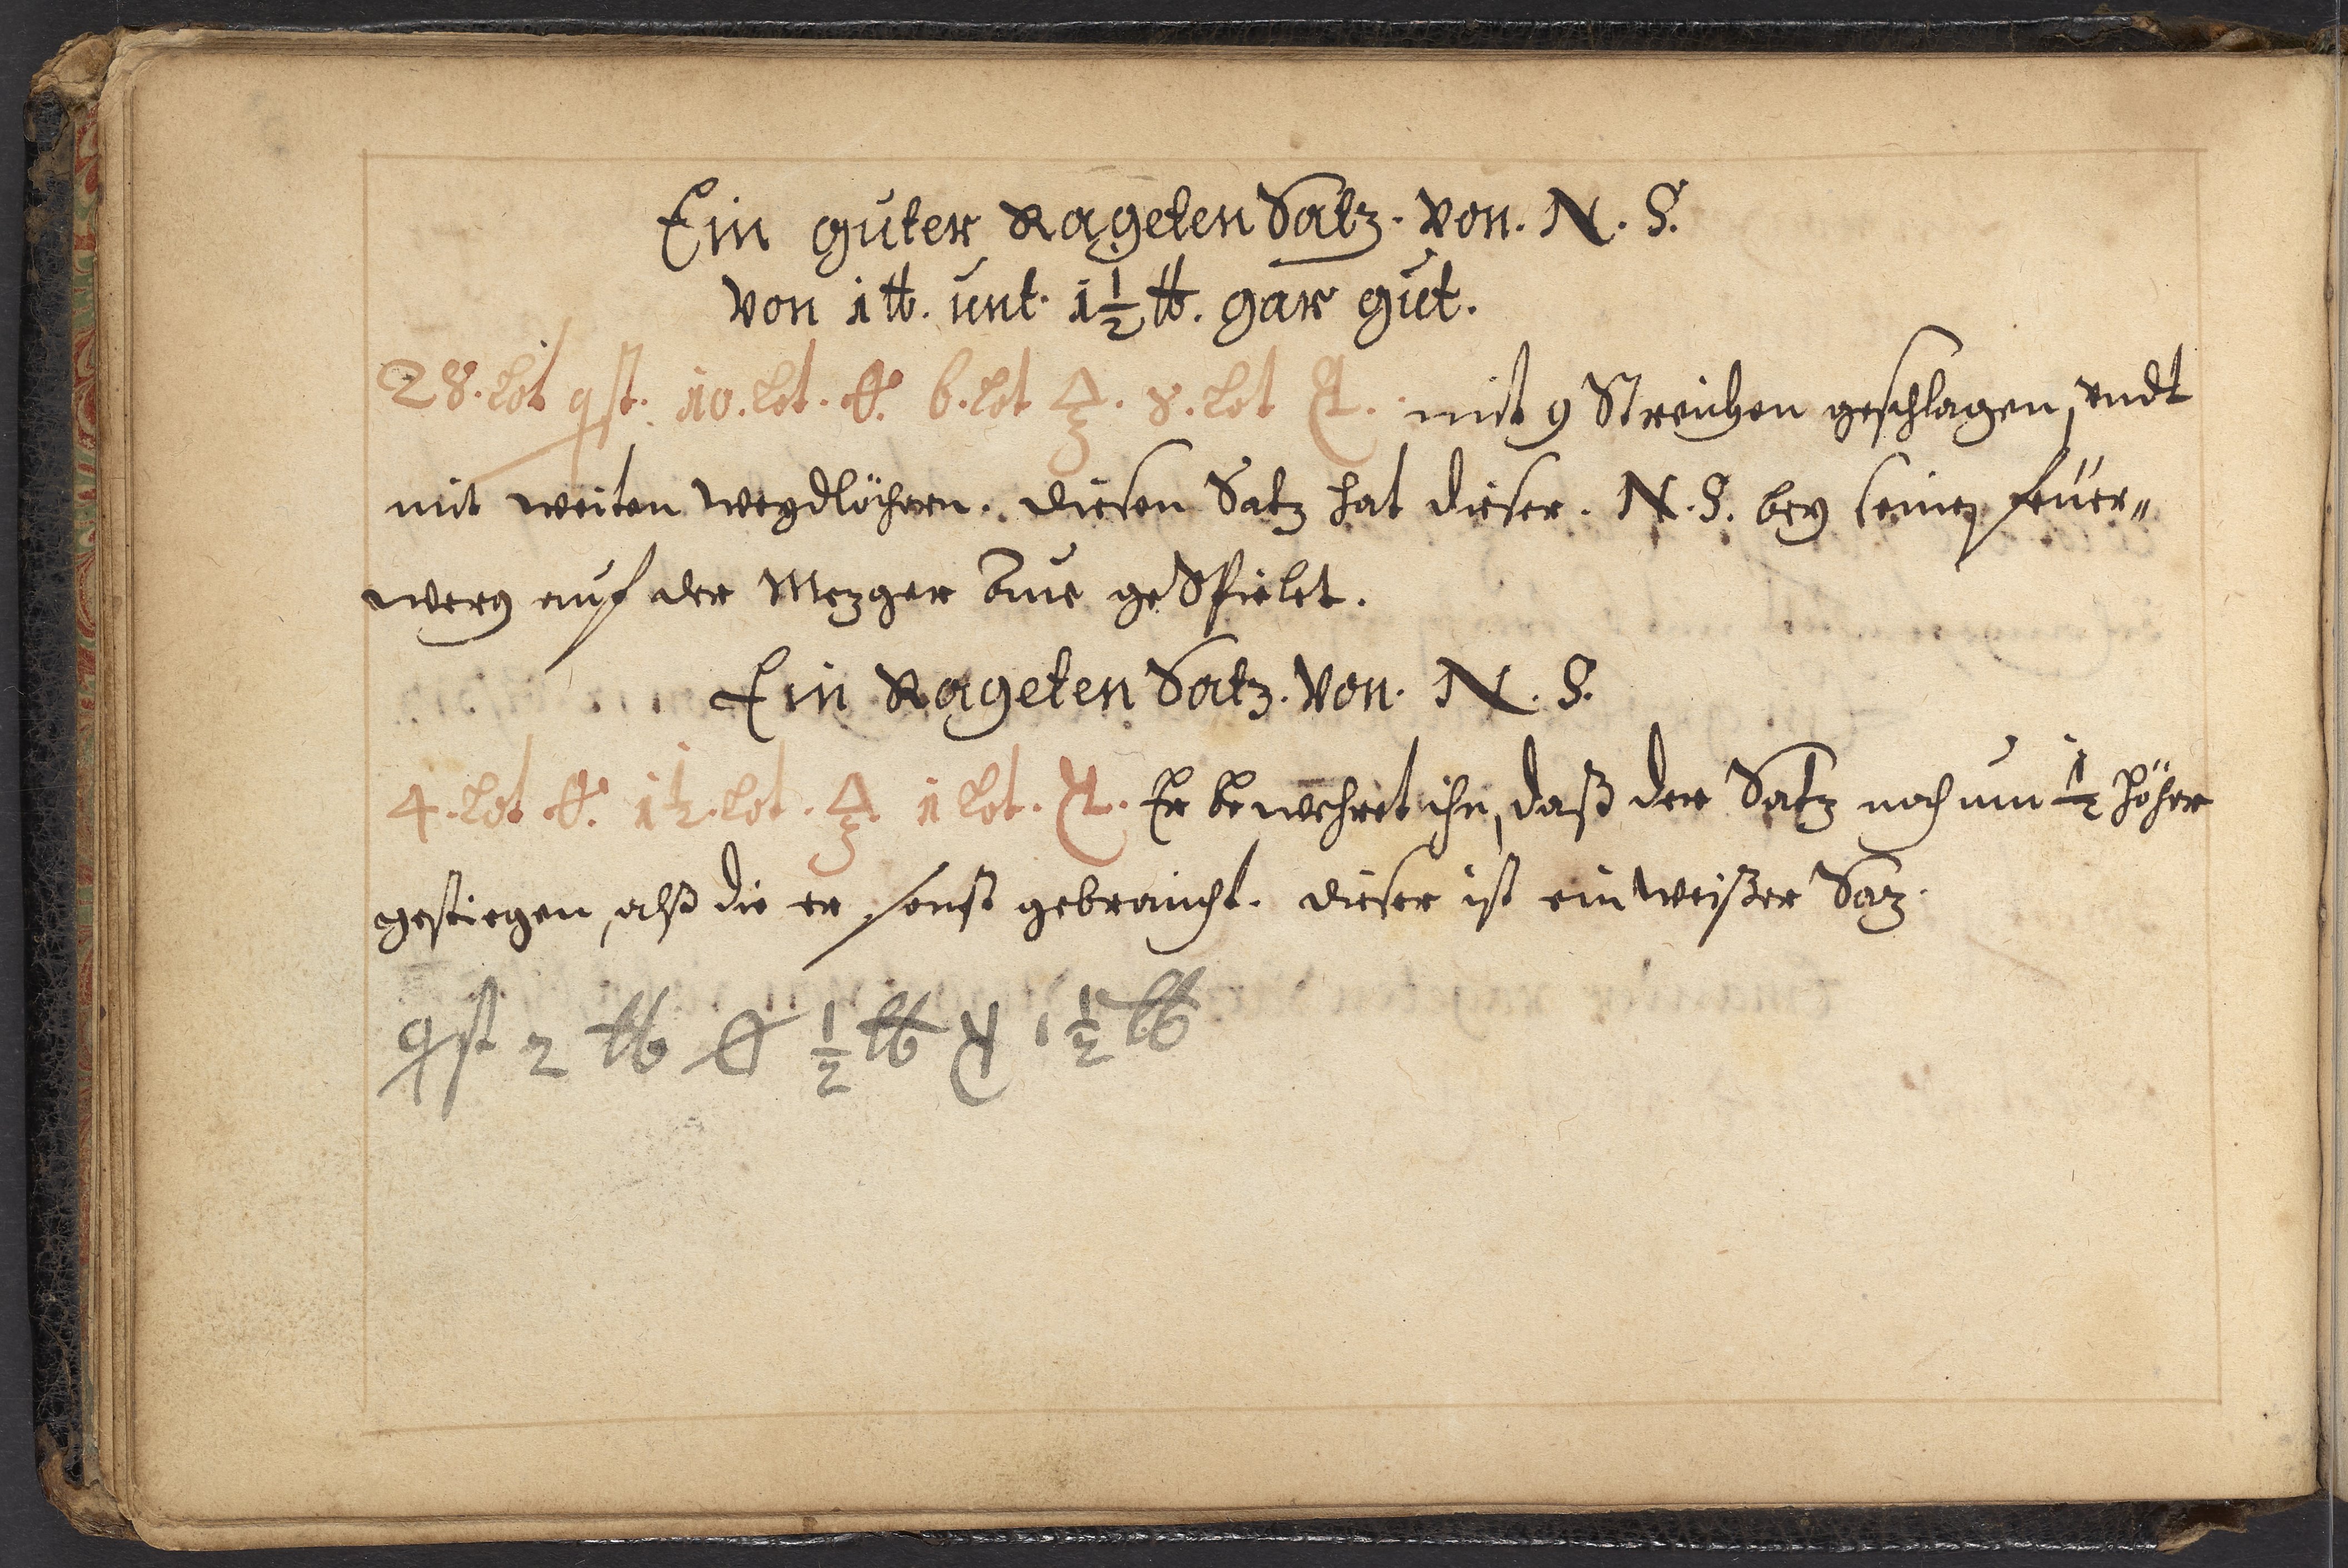 Ein guter Rageten Satz. Von. N. S.
Von 1 ℔. unt. 1 1/2 ℔. gar gut.
28. lot 10. lot. 6. lot 8. lot mit 9 Streichen geschlagen, undt
mit weiten Weydlöchern. diesen Satz hat dieser. N. S. bey seinem feuer„
werg auf der Mezger Aue gespielet.
Ein Rageten Satz. Von. N. S.
4. lot 1 1/2. lot. 1 lot. Er bewehret ihn, daß der Satz noch um 1/2 höher
gestiegen, alß die er sonst gebraucht. dieser ist ein weißer Saz.
2 ℔ 1/2 ℔ 1 1/2 ℔